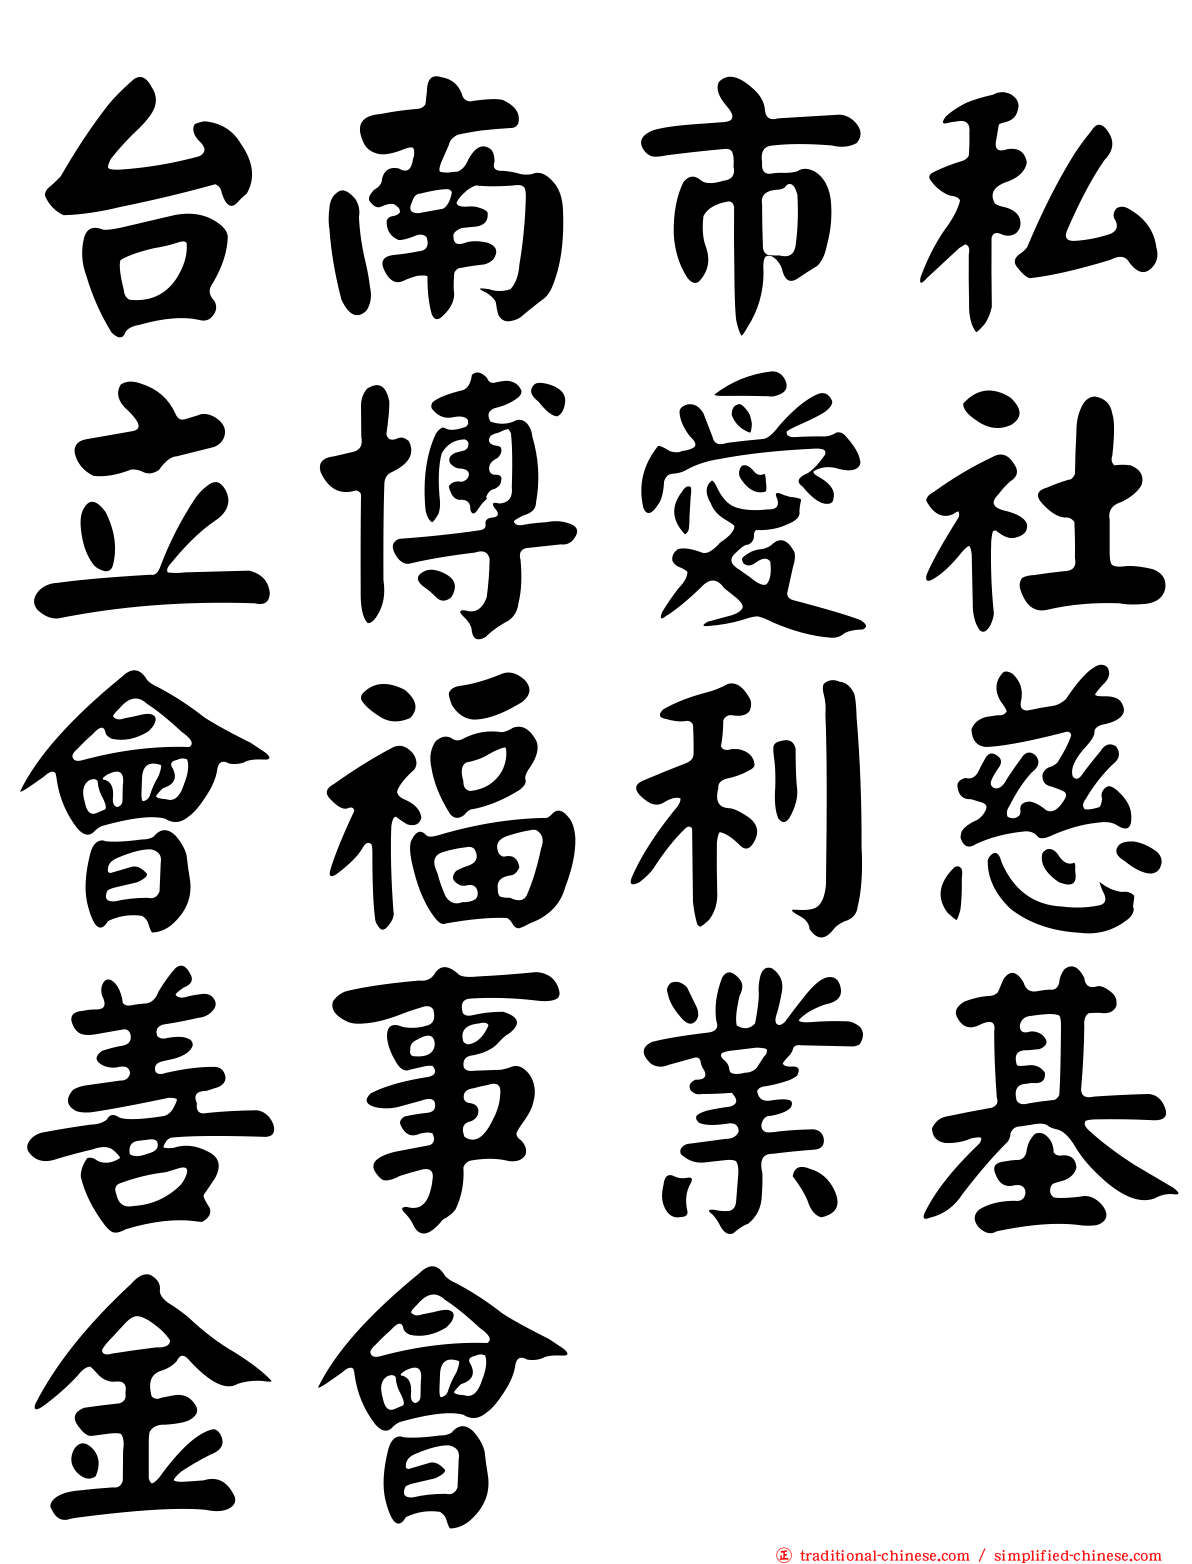 台南市私
立博愛社
會福利慈
善事業基
金會
正 traditional-chinese.com / simplified-chinese.com